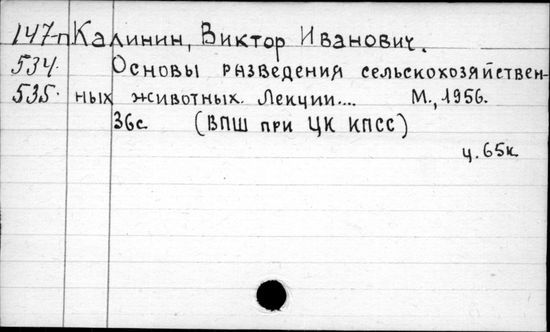 147-п Калинин, Виктор Иванович.
534. Основы разведения сельскохозяйствен-
535. ных животных. Лекции.... М., 1956.
36с. (ВПШ при ЦК КПСС)
ц. 65к.